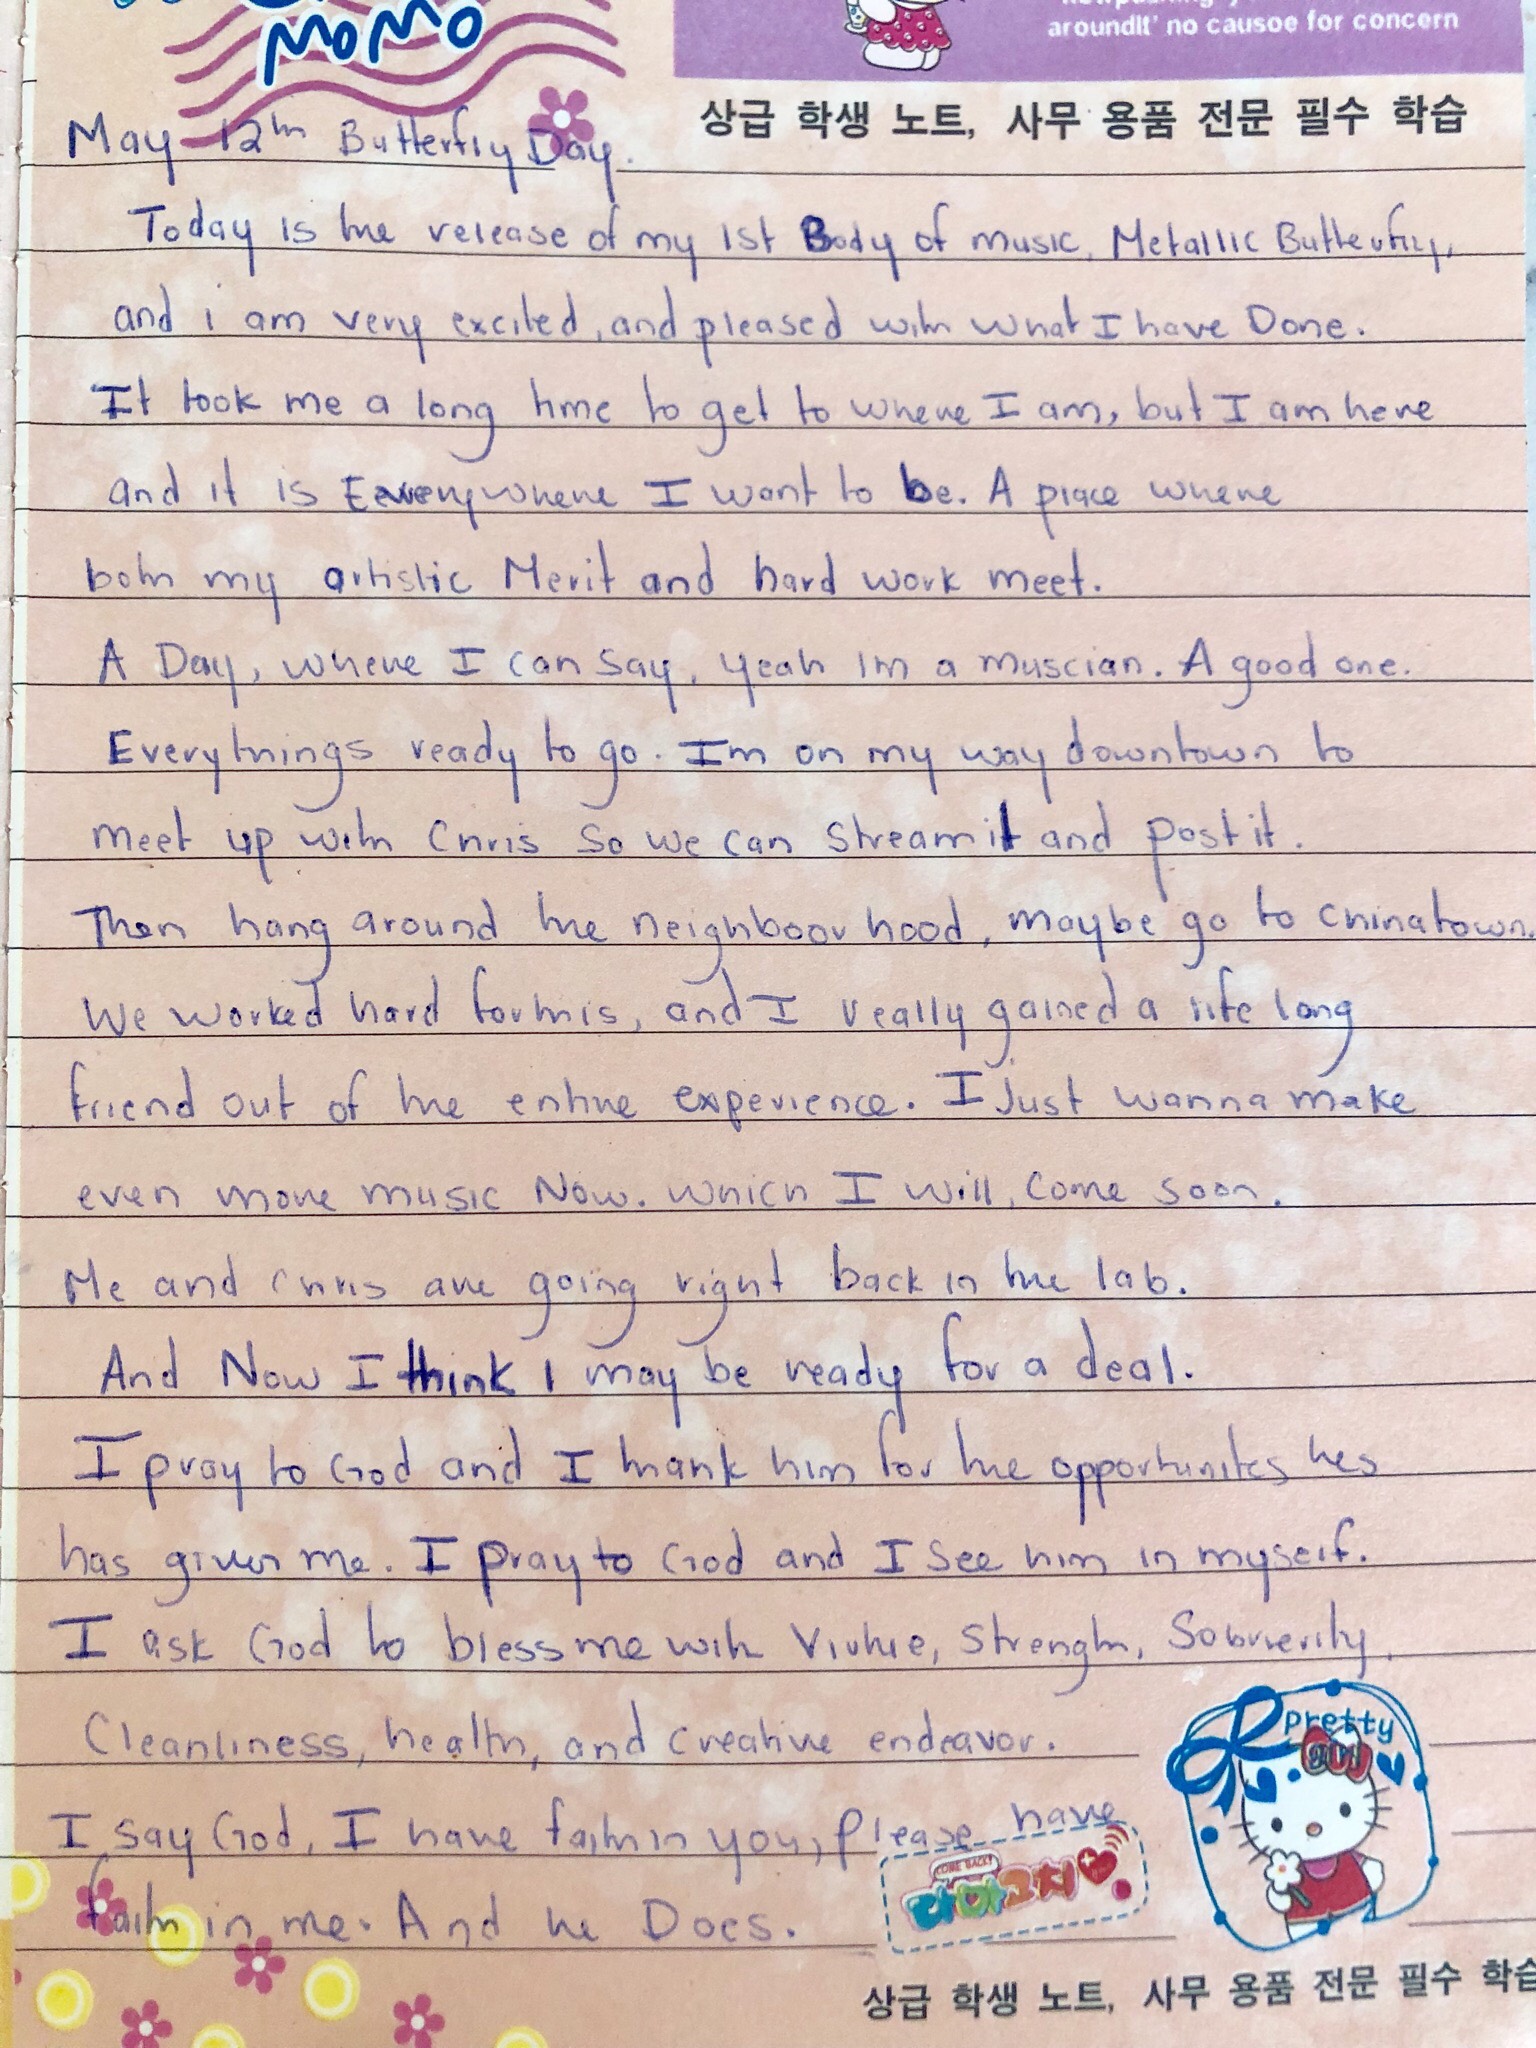 MOMO
aroundIt' no causoe for concern
상급 학생 노트, 사무 용품 전문 필수 학습
May 12th Butterfly Day.
Today is the release of my 1st Body of music, Metallic Butterfly,
and i am very excited, and pleased with what I have Done.
It took me a long time to get to where I am, but I am here
and it is Everywhere I want to be. A place where
both my artistic Merit and hard work meet.
A Day, where I can say, yeah Im a muscian. A good one.
Everythings ready to go. Im on my way downtown to
meet up with Chris So we can Stream it and post it.
Then hang around the neighboorhood, maybe go to Chinatown.
We worked hard for this, and I really gained a life long
friend out of the entire experience. I Just wanna make
even more music Now. Which I will, Come soon.
Me and Chris are going right back in the lab.
And Now I think I may be ready for a deal.
I pray to God and I thank him for the opportunites hes
has given me. I pray to God and I see him in myself.
I ask God to bless me with Virtue, Strength, Sobrierity,
Cleanliness, health, and creative endeavor.
I say God, I have faith in you, please have
faith in me. And he Does.
pretty
COME BACK!
다마고치
상급 학생 노트, 사무 용품 전문 필수 학습